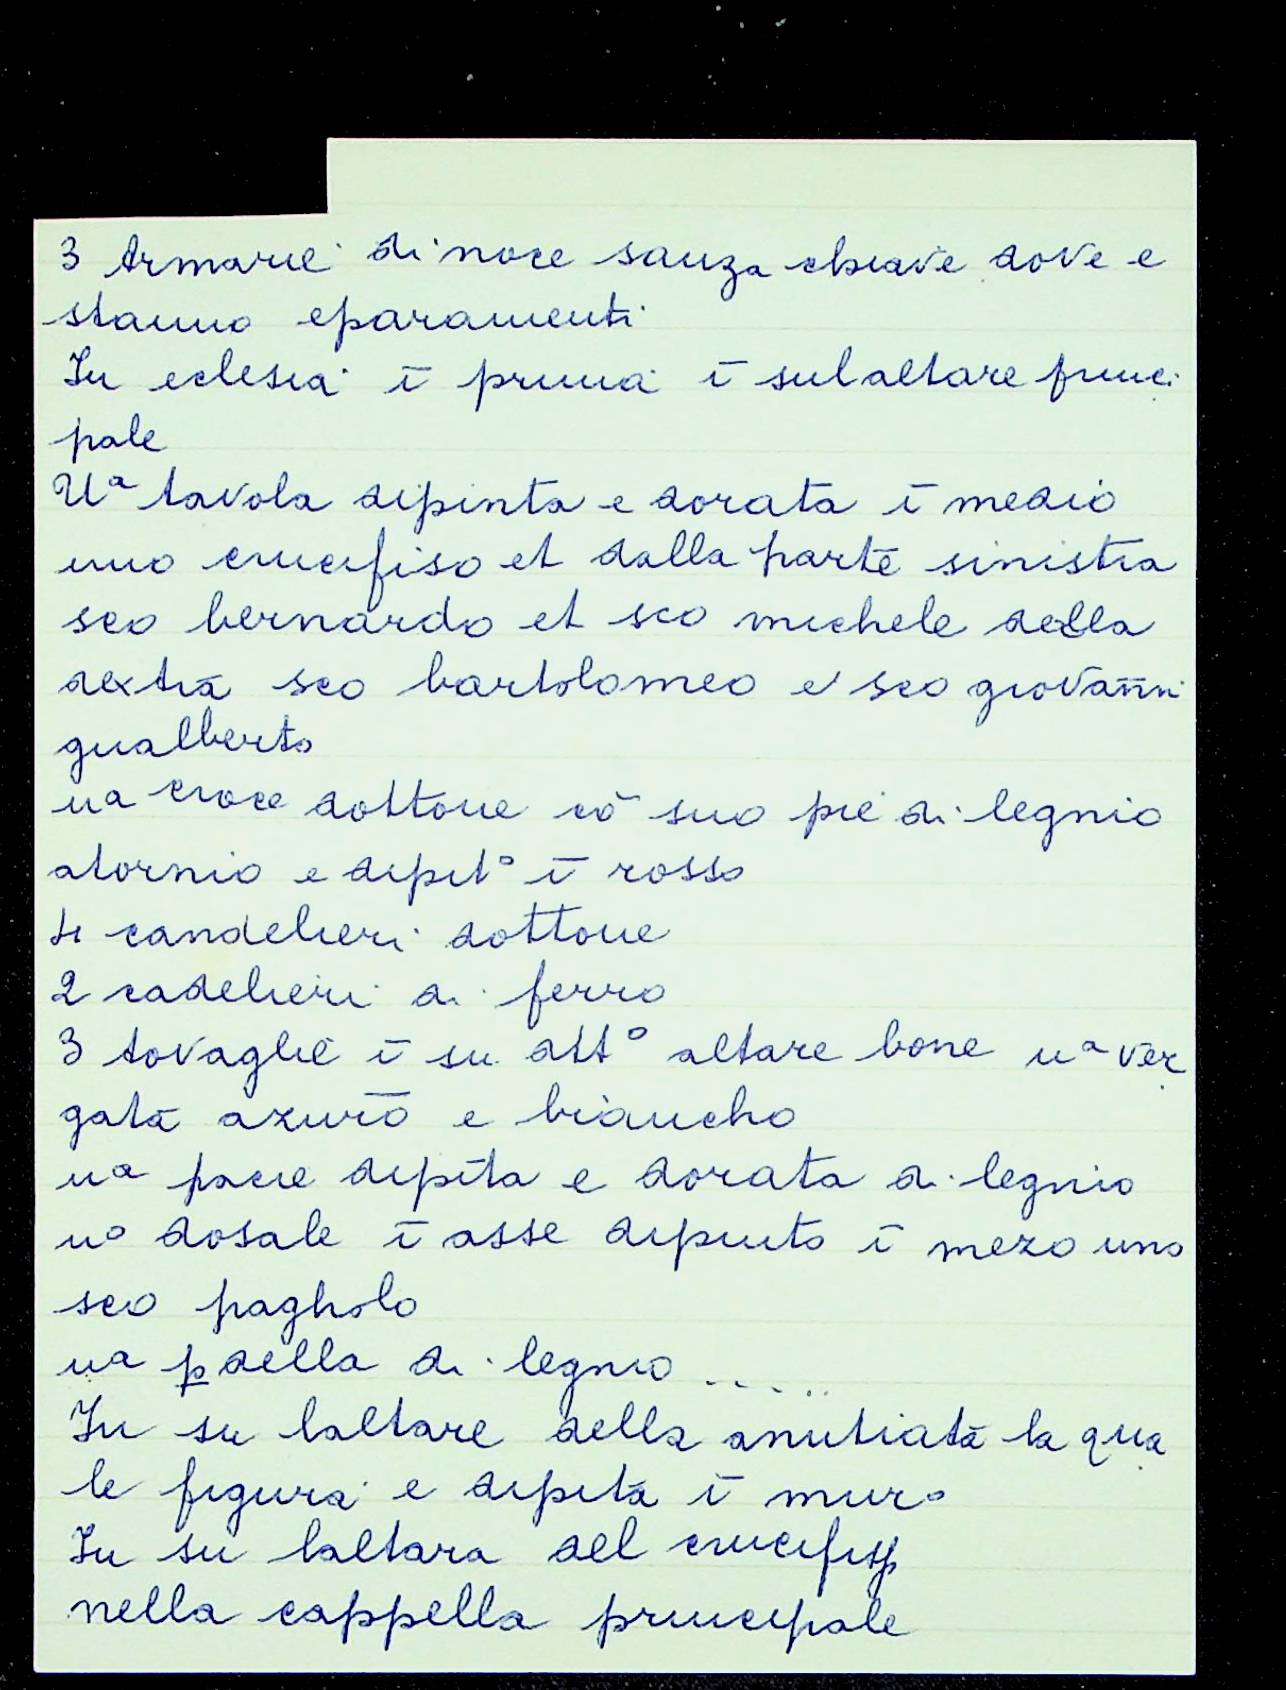 3 Armarie di noce sanza chiave dove e
stanno eparamenti
In eclesia ī prima ī sulaltare princi
pale
Uª tavola dipinta e dorata ī medio
uno crucifiso et dalla parte sinistra
sco bernardo et sco michele della
dextra sco bartolomeo e sco giovāni
gualberto
uª croce dottone cō suo pie di legnio
atornio e dipit° ī rosso
4 candelieri dottone
2 cadelieri di ferro
3 tovaglie ī su dtt° altare bone uª ver
gata azuro e biancho
uª pacie dipīta e dorata di legnio
u° dosale ī asse dipinto ī mezo uno
sco pagholo
uª pdella di legnio .....
In su laltare della anutiata la qua
le figura e dipita ī muro
In su laltara del crucifisso
nella cappella principale